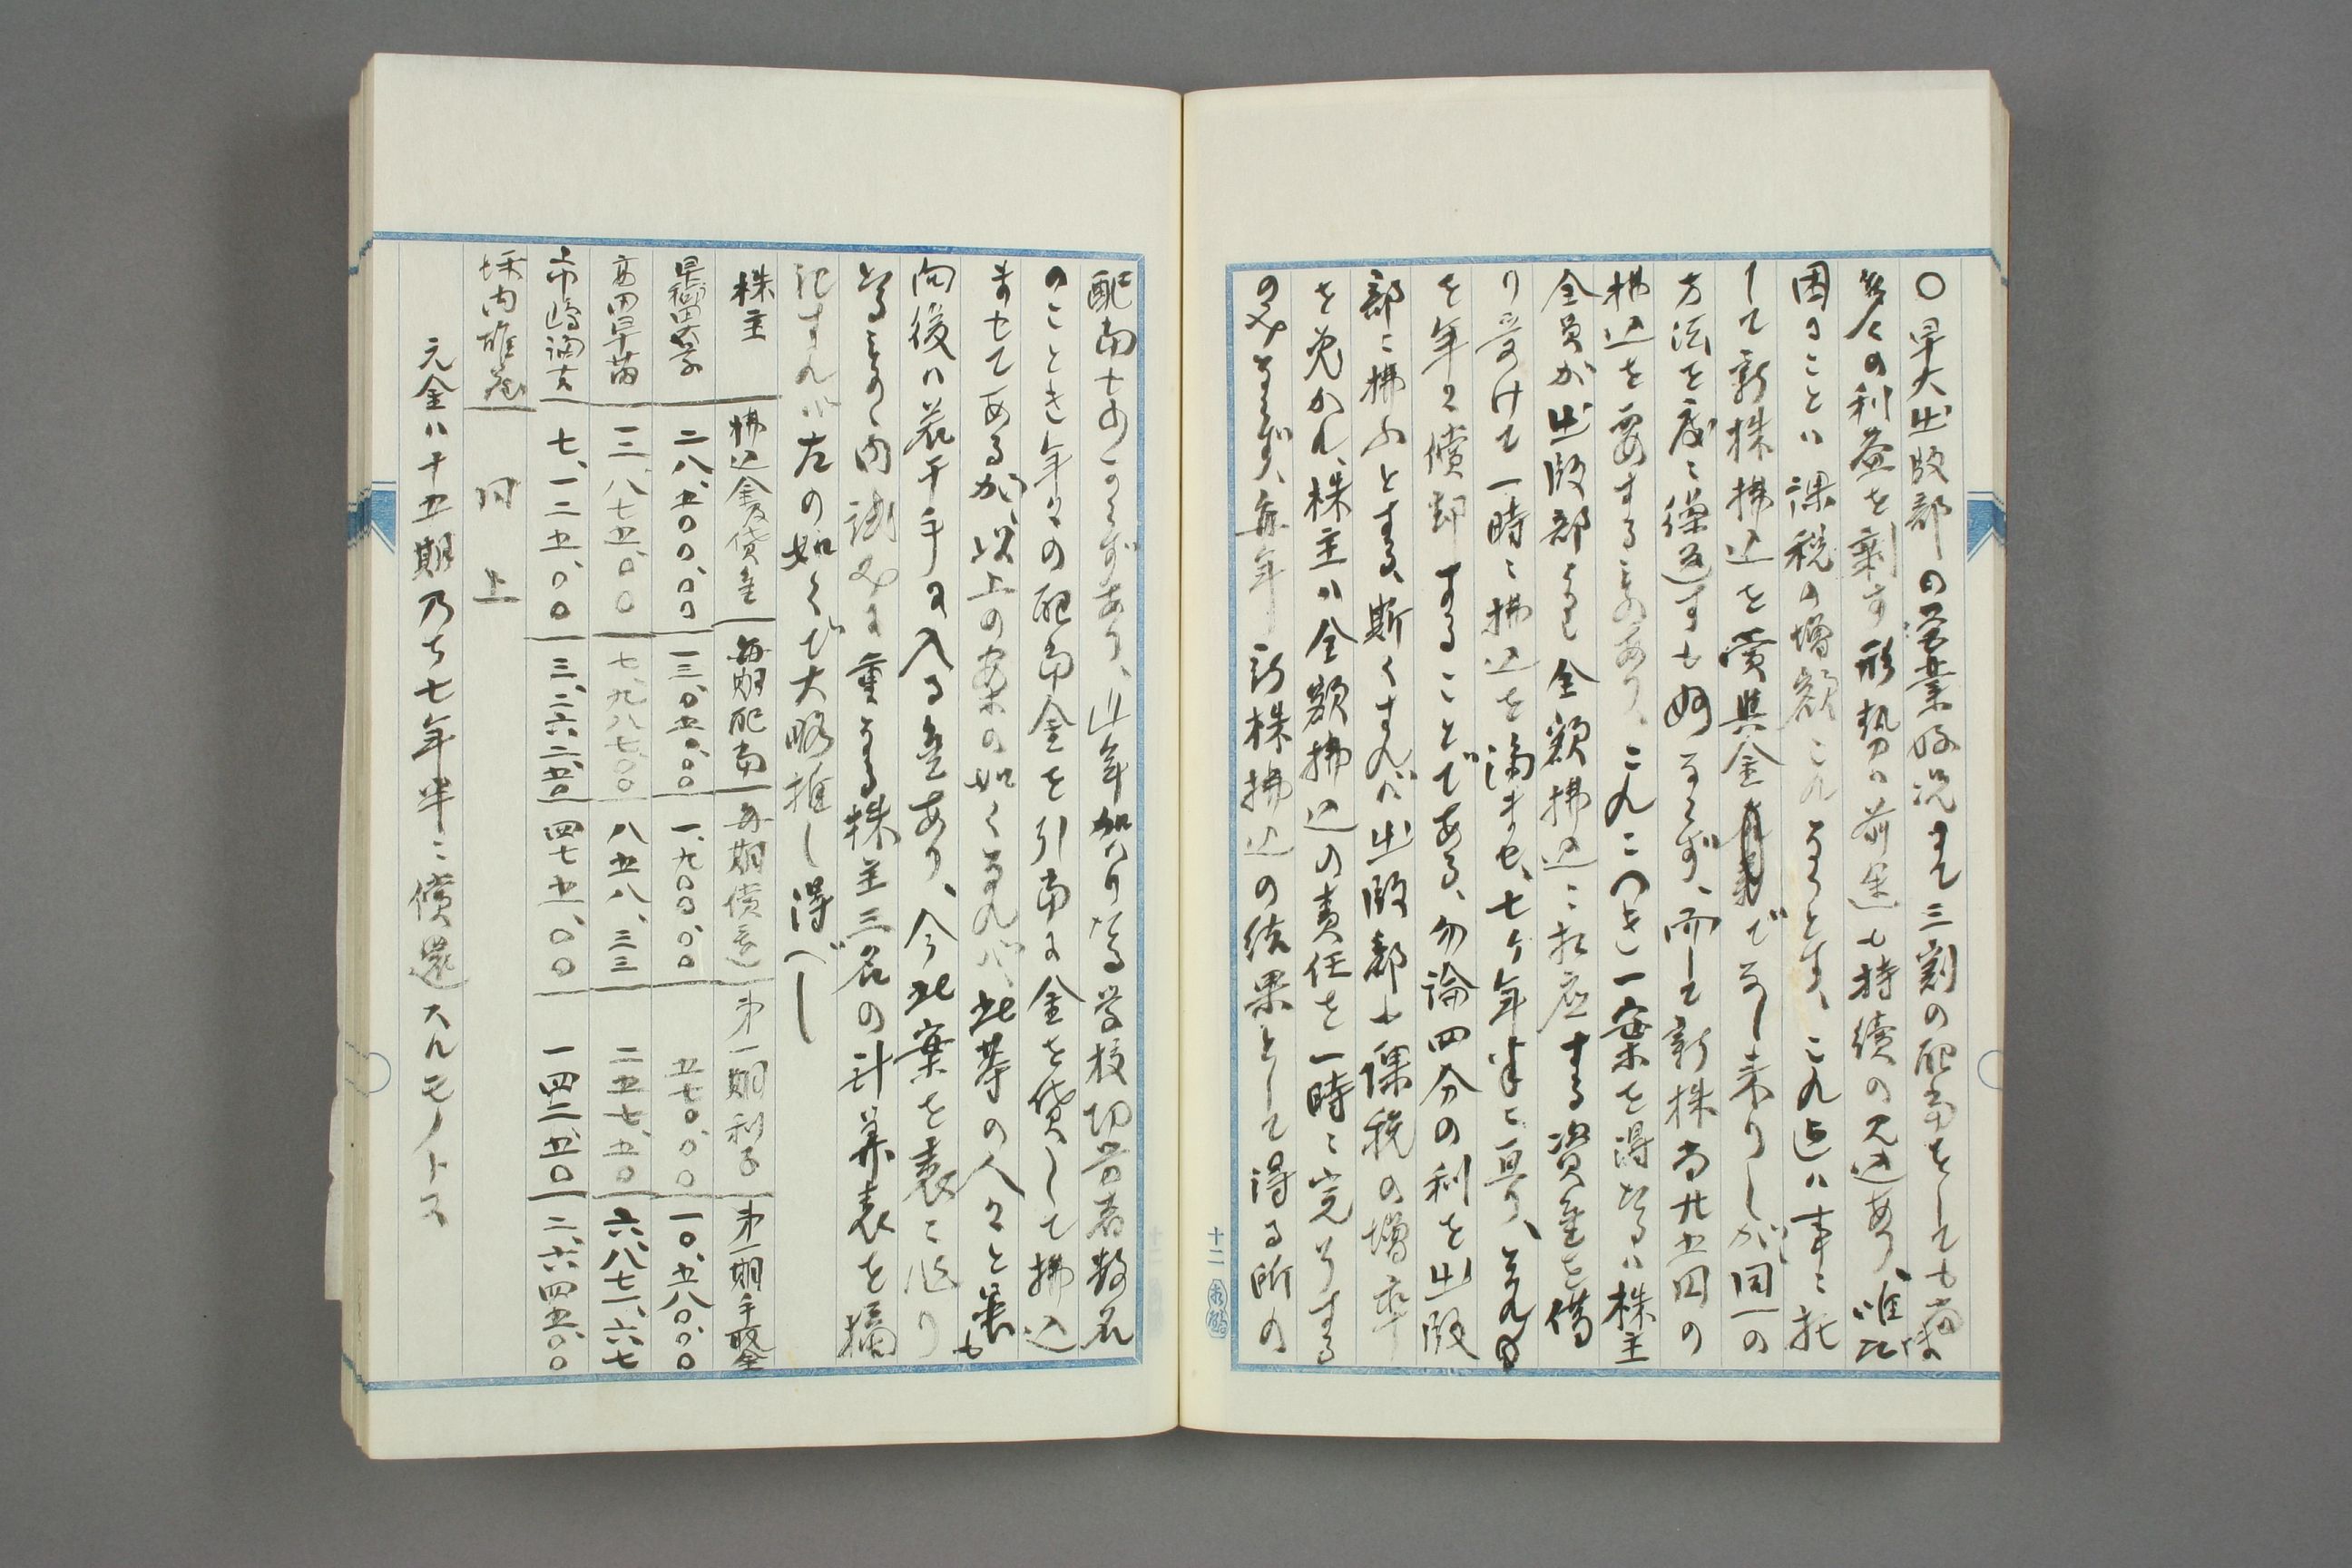 〇早大出版部の営業好況にて三割の配当をしても尚ほ
多くの利益を剰す形勢ハ前途も持続の見込あり、唯此
困ることハ課税の増額これなりとす、これ迄ハ事ニ托
して新株払込を賞与金でなし来りしが同一の
方法を度々繰返すも妙ならず、而して新株尚廿五円の
払込を要するものあり、これにつき一案を得たるハ株主
全員が出版部より全額払込ニ相応する資金を借
り受けて一時ニ払込を済ませ、七ケ年半に亘り、之れ
を年々償却することである、勿論四分の利を出版
部ニ払ふとする、斯くすれバ出版部も課税の増率
を免かれ、株主ハ全額払込の責任を一時ニ完うする
のみならず、毎年新株払込の結果として得る所の
配当少なからずあり、此年加ハりたる学校功労者数名
のごとき年々の配当金を引当に金を貸して払込
ませてあるが、以上の案の如くなれバ、此等の人々と雖も
向後ハ若干手に入る金あり、今此案を表ニ作り
たるものゝ内試みに重なる株主三名の計算表を摘
記すれバ左の如くで大略推し得べし
株主 払込金及貸金 毎期配当 毎期償還 第一期利子 第一期手取金
早稲田大学 二八、五〇〇、〇〇 一三、〇五〇、〇〇 一、九〇〇、〇〇 五七〇、〇〇 一〇、五八〇、〇〇
高田早苗 一三、八七五、〇〇 七、九八七、〇〇 八五八、三三 二五七、五〇 六、八七一、六七
市嶋謙吉 七、一二五、〇〇 三、二六二、五〇 四七五、〇〇 一四二、五〇 二、六四五、〇〇
坪内雄蔵 同上
元金ハ十五期乃ち七年半ニ償還スルモノトス
十二